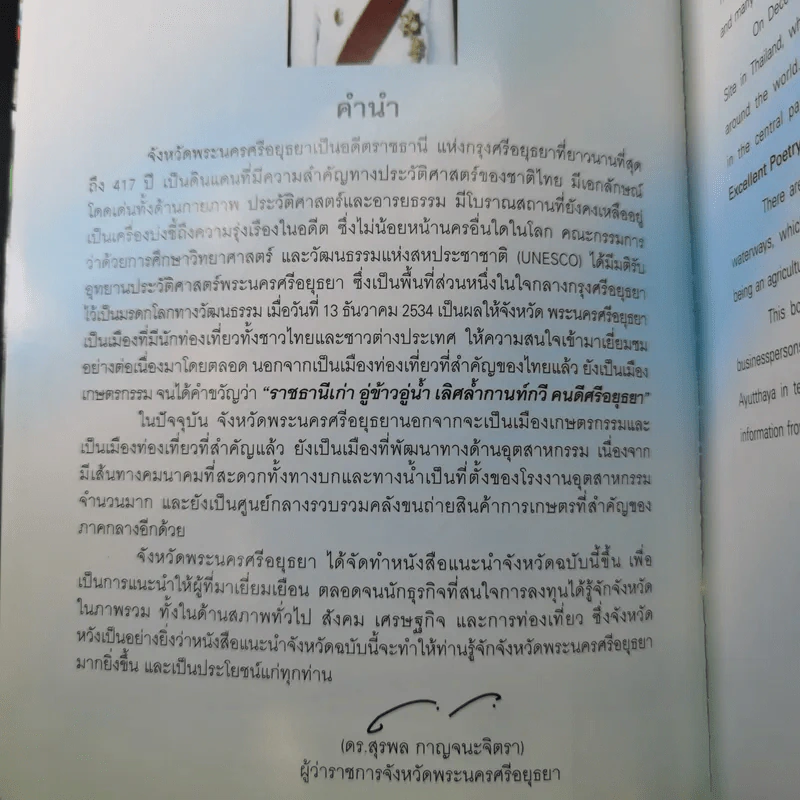 คำนำ
จังหวัดพระนครศรีอยุธยาเป็นอดีตราชธานี แห่งกรุงศรีอยุธยาที่ยาวนานที่สุด
ถึง 417 ปี เป็นดินแดนที่มีความสำคัญทางประวัติศาสตร์ของชาติไทย มีเอกลักษณ์
โดดเด่นทั้งด้านกายภาพ ประวัติศาสตร์และอารยธรรม มีโบราณสถานที่ยังคงเหลืออยู่
เป็นเครื่องบ่งชี้ถึงความรุ่งเรืองในอดีต ซึ่งไม่น้อยหน้านครอื่นใดในโลก คณะกรรมการ
ว่าด้วยการศึกษาวิทยาศาสตร์ และวัฒนธรรมแห่งสหประชาชาติ (UNESCO) ได้มีมติรับ
อุทยานประวัติศาสตร์พระนครศรีอยุธยา ซึ่งเป็นพื้นที่ส่วนหนึ่งในใจกลางกรุงศรีอยุธยา
ไว้เป็นมรดกโลกทางวัฒนธรรม เมื่อวันที่ 13 ธันวาคม 2534 เป็นผลให้จังหวัด พระนครศรีอยุธยา
เป็นเมืองที่มีนักท่องเที่ยวทั้งชาวไทยและชาวต่างประเทศ ให้ความสนใจเข้ามาเยี่ยมชม
อย่างต่อเนื่องมาโดยตลอด นอกจากเป็นเมืองท่องเที่ยวที่สำคัญของไทยแล้ว ยังเป็นเมือง
เกษตรกรรม จนได้คำขวัญว่า "ราชธานีเก่า อู่ข้าวอู่น้ำ เลิศล้ำกานท์กวี คนดีศรีอยุธยา"
ในปัจจุบัน จังหวัดพระนครศรีอยุธยานอกจากจะเป็นเมืองเกษตรกรรมและ
เป็นเมืองท่องเที่ยวที่สำคัญแล้ว ยังเป็นเมืองที่พัฒนาทางด้านอุตสาหกรรม เนื่องจาก
มีเส้นทางคมนาคมที่สะดวกทั้งทางบกและทางน้ำเป็นที่ตั้งของโรงงานอุตสาหกรรม
จำนวนมาก และยังเป็นศูนย์กลางรวบรวมคลังขนถ่ายสินค้าการเกษตรที่สำคัญของ
ภาคกลางอีกด้วย
จังหวัดพระนครศรีอยุธยา ได้จัดทำหนังสือแนะนำจังหวัดฉบับนี้ขึ้น เพื่อ
เป็นการแนะนำให้ผู้ที่มาเยี่ยมเยือน ตลอดจนนักธุรกิจที่สนใจการลงทุนได้รู้จักจังหวัด
ในภาพรวม ทั้งในด้านสภาพทั่วไป สังคม เศรษฐกิจ และการท่องเที่ยว ซึ่งจังหวัด
หวังเป็นอย่างยิ่งว่าหนังสือแนะนำจังหวัดฉบับนี้จะทำให้ท่านรู้จักจังหวัดพระนครศรีอยุธยา
มากยิ่งขึ้น และเป็นประโยชน์แก่ทุกท่าน
(ดร.สุรพล กาญจนะจิตรา)
ผู้ว่าราชการจังหวัดพระนครศรีอยุธยา
and many
On Dec
Site in Thailand, wh
around the world.
in the central pa
Excellent Poetry
There are
waterways, whic
being an agricultu
This bo
businesspersons
Ayutthaya in te
information fro